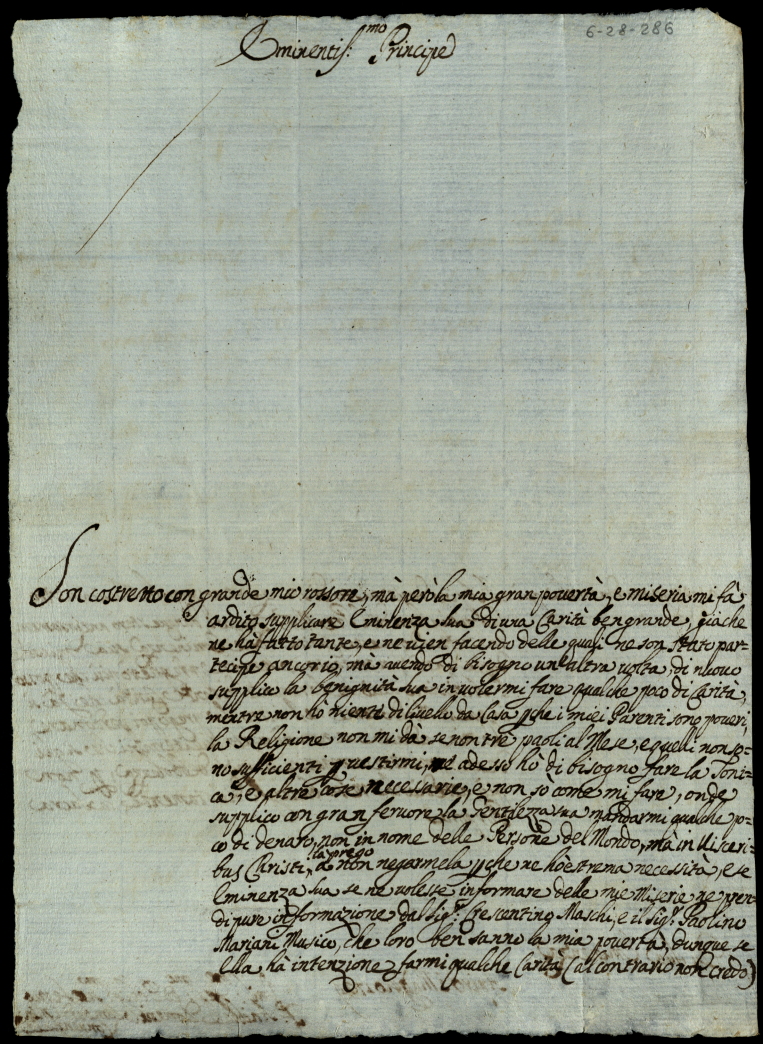 6-28-286
Eminentiss:mo Principe
Son costretto con grande mio rossore, mà però la mia gran povertà, e miseria mi fà
ardito supplicare Eminenza sua di una Carità ben grande, giache
ne hà fatto tante, e ne vien facendo delle quali ne son stato par-
tecipe ancor io, mà avendo di bisogno un'altra volta, di nuovo
supplico la benignità sua in volermi fare qualche poco di Carità,
mentre non hò niente di livello da Casa p che i miei Parenti sono poveri,
la Religione non mi dà se non trè paoli al Mese, e quelli non so-
no sufficienti p vestirmi, adesso hò di bisogno fare la Toni-
ca, e altre cose necessarie, e non so come mi fare, onde
supplico con gran fervore la Gentilezza sua mandarmi qualche po-
co di denaro, non in nome delle Persone del Mondo, mà in Visceri-
bus Christi, la prego à non negarmela p che ne hò estrema necessità, e se
Eminenza sua se ne volesse informare delle mie Miserie ne pren-
di pure informazione dal Sig.r Crescentino Maschi, e il Sig.r Paolino
Mariani Musico, che loro ben sanno la mia povertà, dunque se
Ella hà intenzione farmi qualche Carità (al contrario non credo)